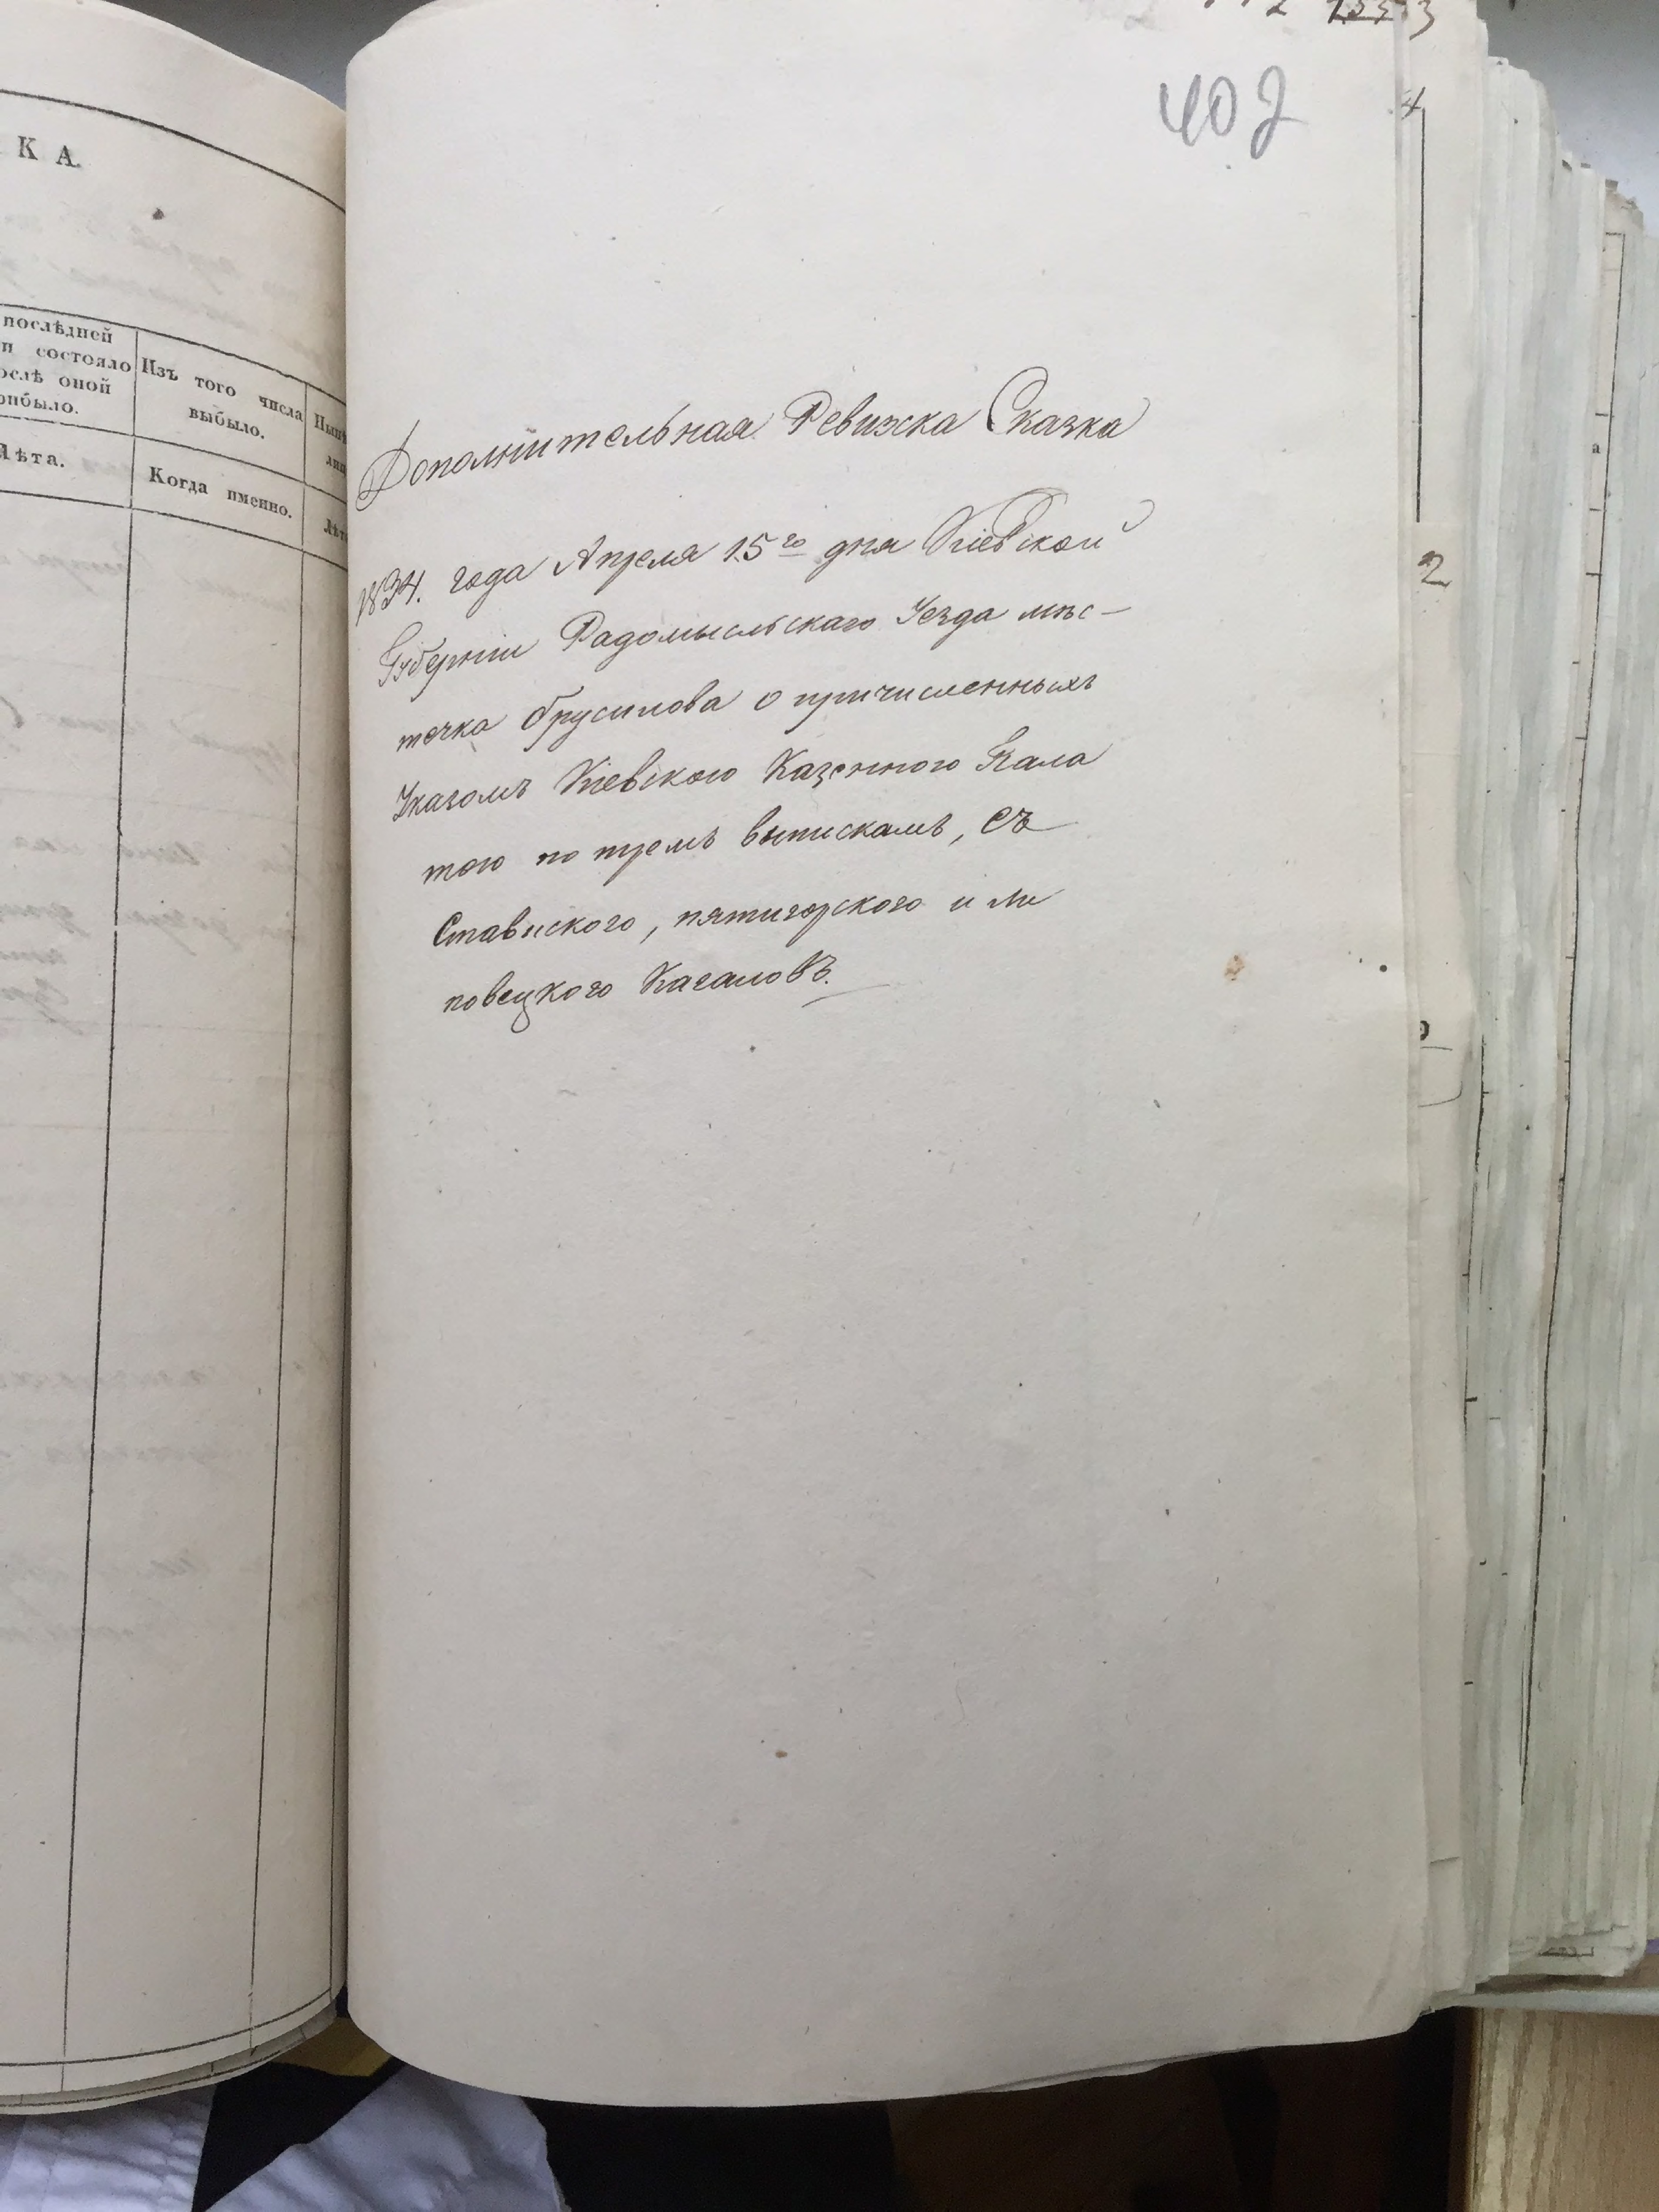 К А.
послѣдней
и состояло
ослѣ оной
рибыло.
Лѣта.
Изъ того числа
выбыло.
Когда именно.
402
Дополнительная Ревизска Сказка
1834. года Апреля 15го дня Кіевской
Губерніи Радомысльскаго Уезда мѣс-
течка Брусилова о причисленныхъ
Указомъ Кіевскою Казенною Пала
тою по тремъ выпискамъ, съ
Ставиского, пятигорского и Ли
повецкого Кагаловъ.
2